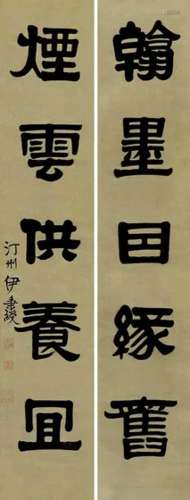 翰墨囙緣舊
煙雲供養冝
汀州伊秉綬